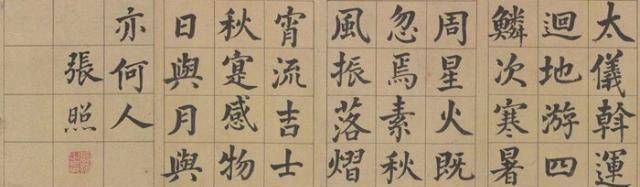 太儀斡運
迴地游四
鱗次寒暑
周星火既
忽焉素秋
風振落熠
宵流吉士
秋寔感物
日與月與
亦何人
張照